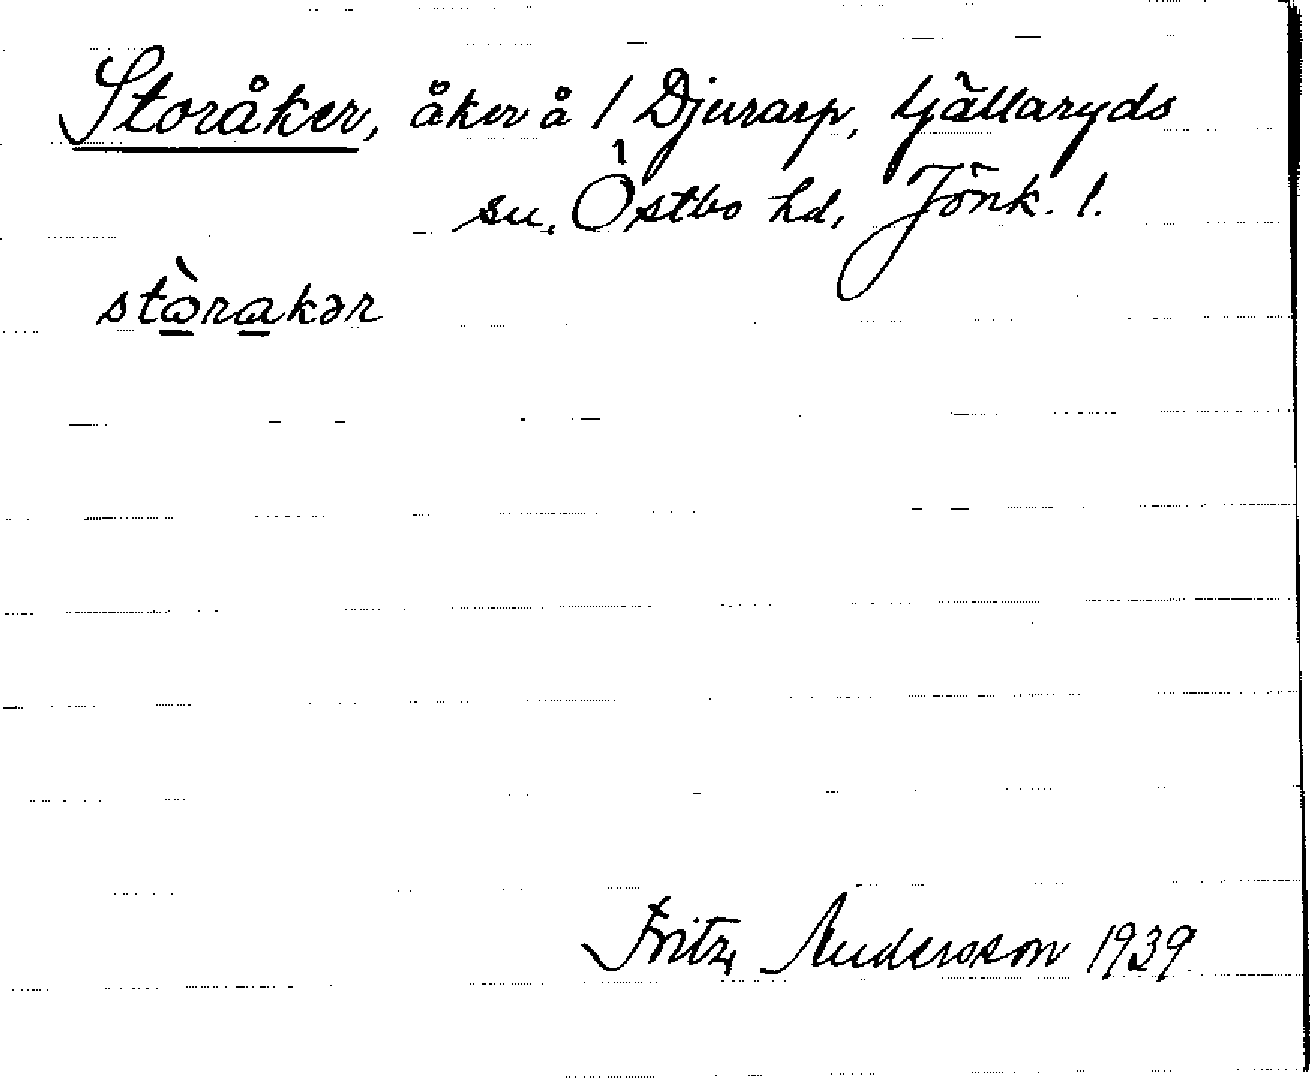 Storåker, åker å 1 Djurarp, tjällaryds
sn. Östbo hd, Jönk. l.
stɷ̀rakər
Fritz Andersson 1939